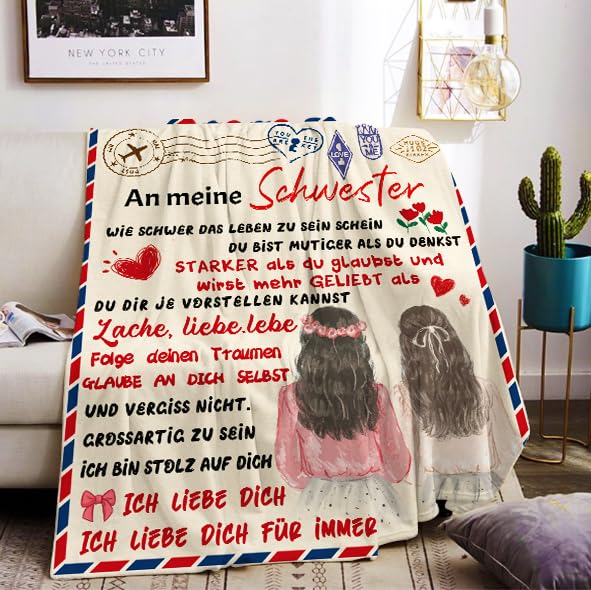 NEW YORK CITY
THE UNITED STATES
YOU ARE THE BEST
LOVE
An meine Schwester
WIE SCHWER DAS LEBEN ZU SEIN SCHEIN
DU BIST MUTIGER ALS DU DENKST
STARKER als du glaubst und
wirst mehr GELIEBT als
DU DIR JE VORSTELLEN KANNST
Lache, liebe.lebe
Folge deinen Traumen
GLAUBE AN DICH SELBST
UND VERGISS NICHT.
GROSSARTIG ZU SEIN
iCH BiN STOLZ AUF DiCH
ICH LIEBE DICH
ICH LIEBE DICH FÜR iMMER